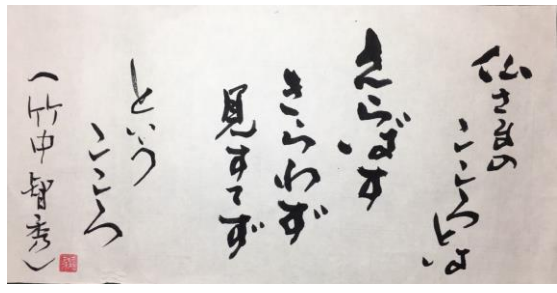 仏さまの
こころとは
えらばず
きらわず
見すてず
という
こころ
(竹中智秀)